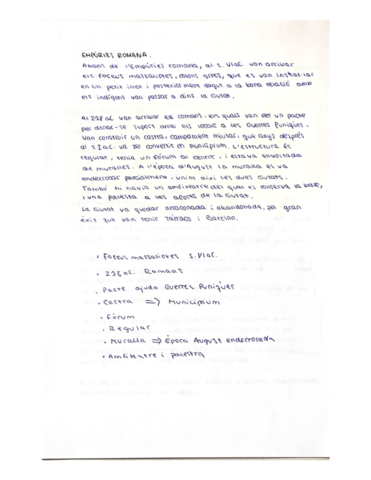 EMPÚRIES ROMANA.
Abans de l'Empúries romana, al s. VIaC van arribar
els foceus massaliotes, colons grecs, que es van instal·lar
en un petit illot i posteriorment degut a la bona relació amb
els indígens van passar a dins la ciutat.
Al 218 aC van arribar els romans, els quals van fer un pacte
per donar-se suport amb els locals a les Guerres Púniques.
Van construir un castra, campament militar, que anys després
al s. I aC. va ser convertit en municipium. L'estructura és
regular, tenia un fòrum al centre i estava envoltada
de muralles. A l'època d'August la muralla es va
enderrocar parcialment, unint així les dues ciutats.
També hi havia un amfiteatre del qual es conserva la base,
i una palestra a les afores de la ciutat.
La ciutat va quedar arraconada i abandonada, pel gran
èxit que van tenir Tàrraco i Barcino.
• Foceis massaliotes s. VIaC.
• 218 aC. Romans
• Pacte ajuda Guerres Púniques
• Castra => Municipium
• Fòrum
• Regular
• Muralla => Època August enderrocada
• Amfiteatre i palestra